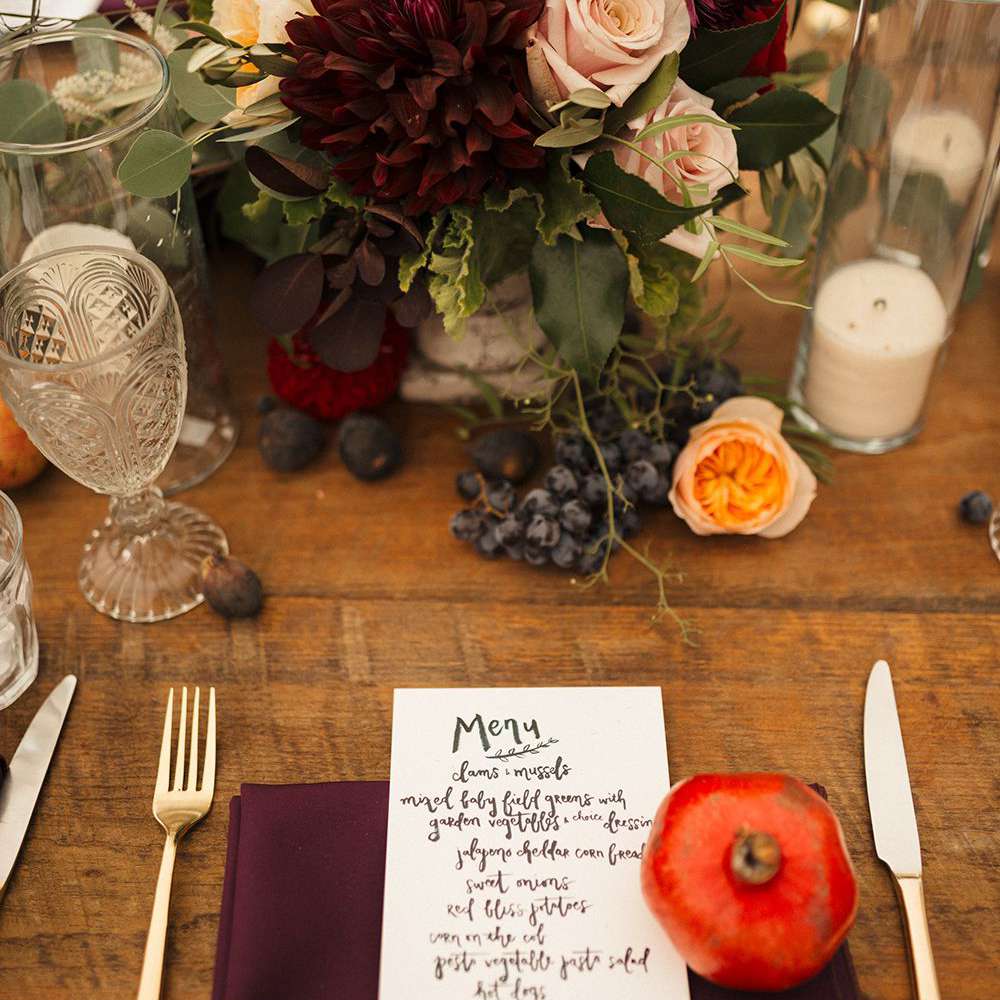 Menu
clams & mussels
mixed baby field greens with
garden vegetables & choice dressin
jalapeno cheddar corn bread
sweet onions
red bliss potatoes
corn on the cob
pesto vegetable pasta salad
hot dogs